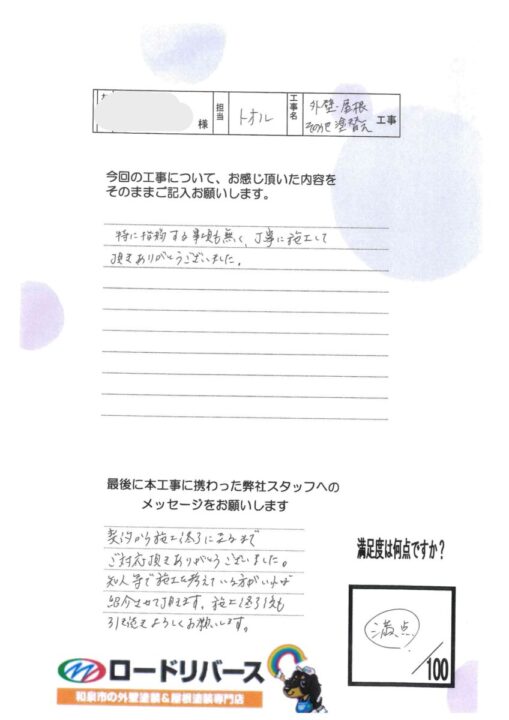 様 担当 トオル 工事名 外壁・屋根 その他塗替え 工事
今回の工事について、お感じ頂いた内容を
そのままご記入お願いします。
特に指摘する事項も無く、丁寧に施工して
頂きありがとうございました。
最後に本工事に携わった弊社スタッフへの
メッセージをお願いします
契約から施工終了に至るまで
ご対応頂きありがとうございました。
知人等で施工を考えている方がいれば
紹介させて頂きます。施工終了後も
引き続きよろしくお願いします。
満足度は何点ですか?
満点
/100
ロードリバース
和泉市の外壁塗装&屋根塗装専門店